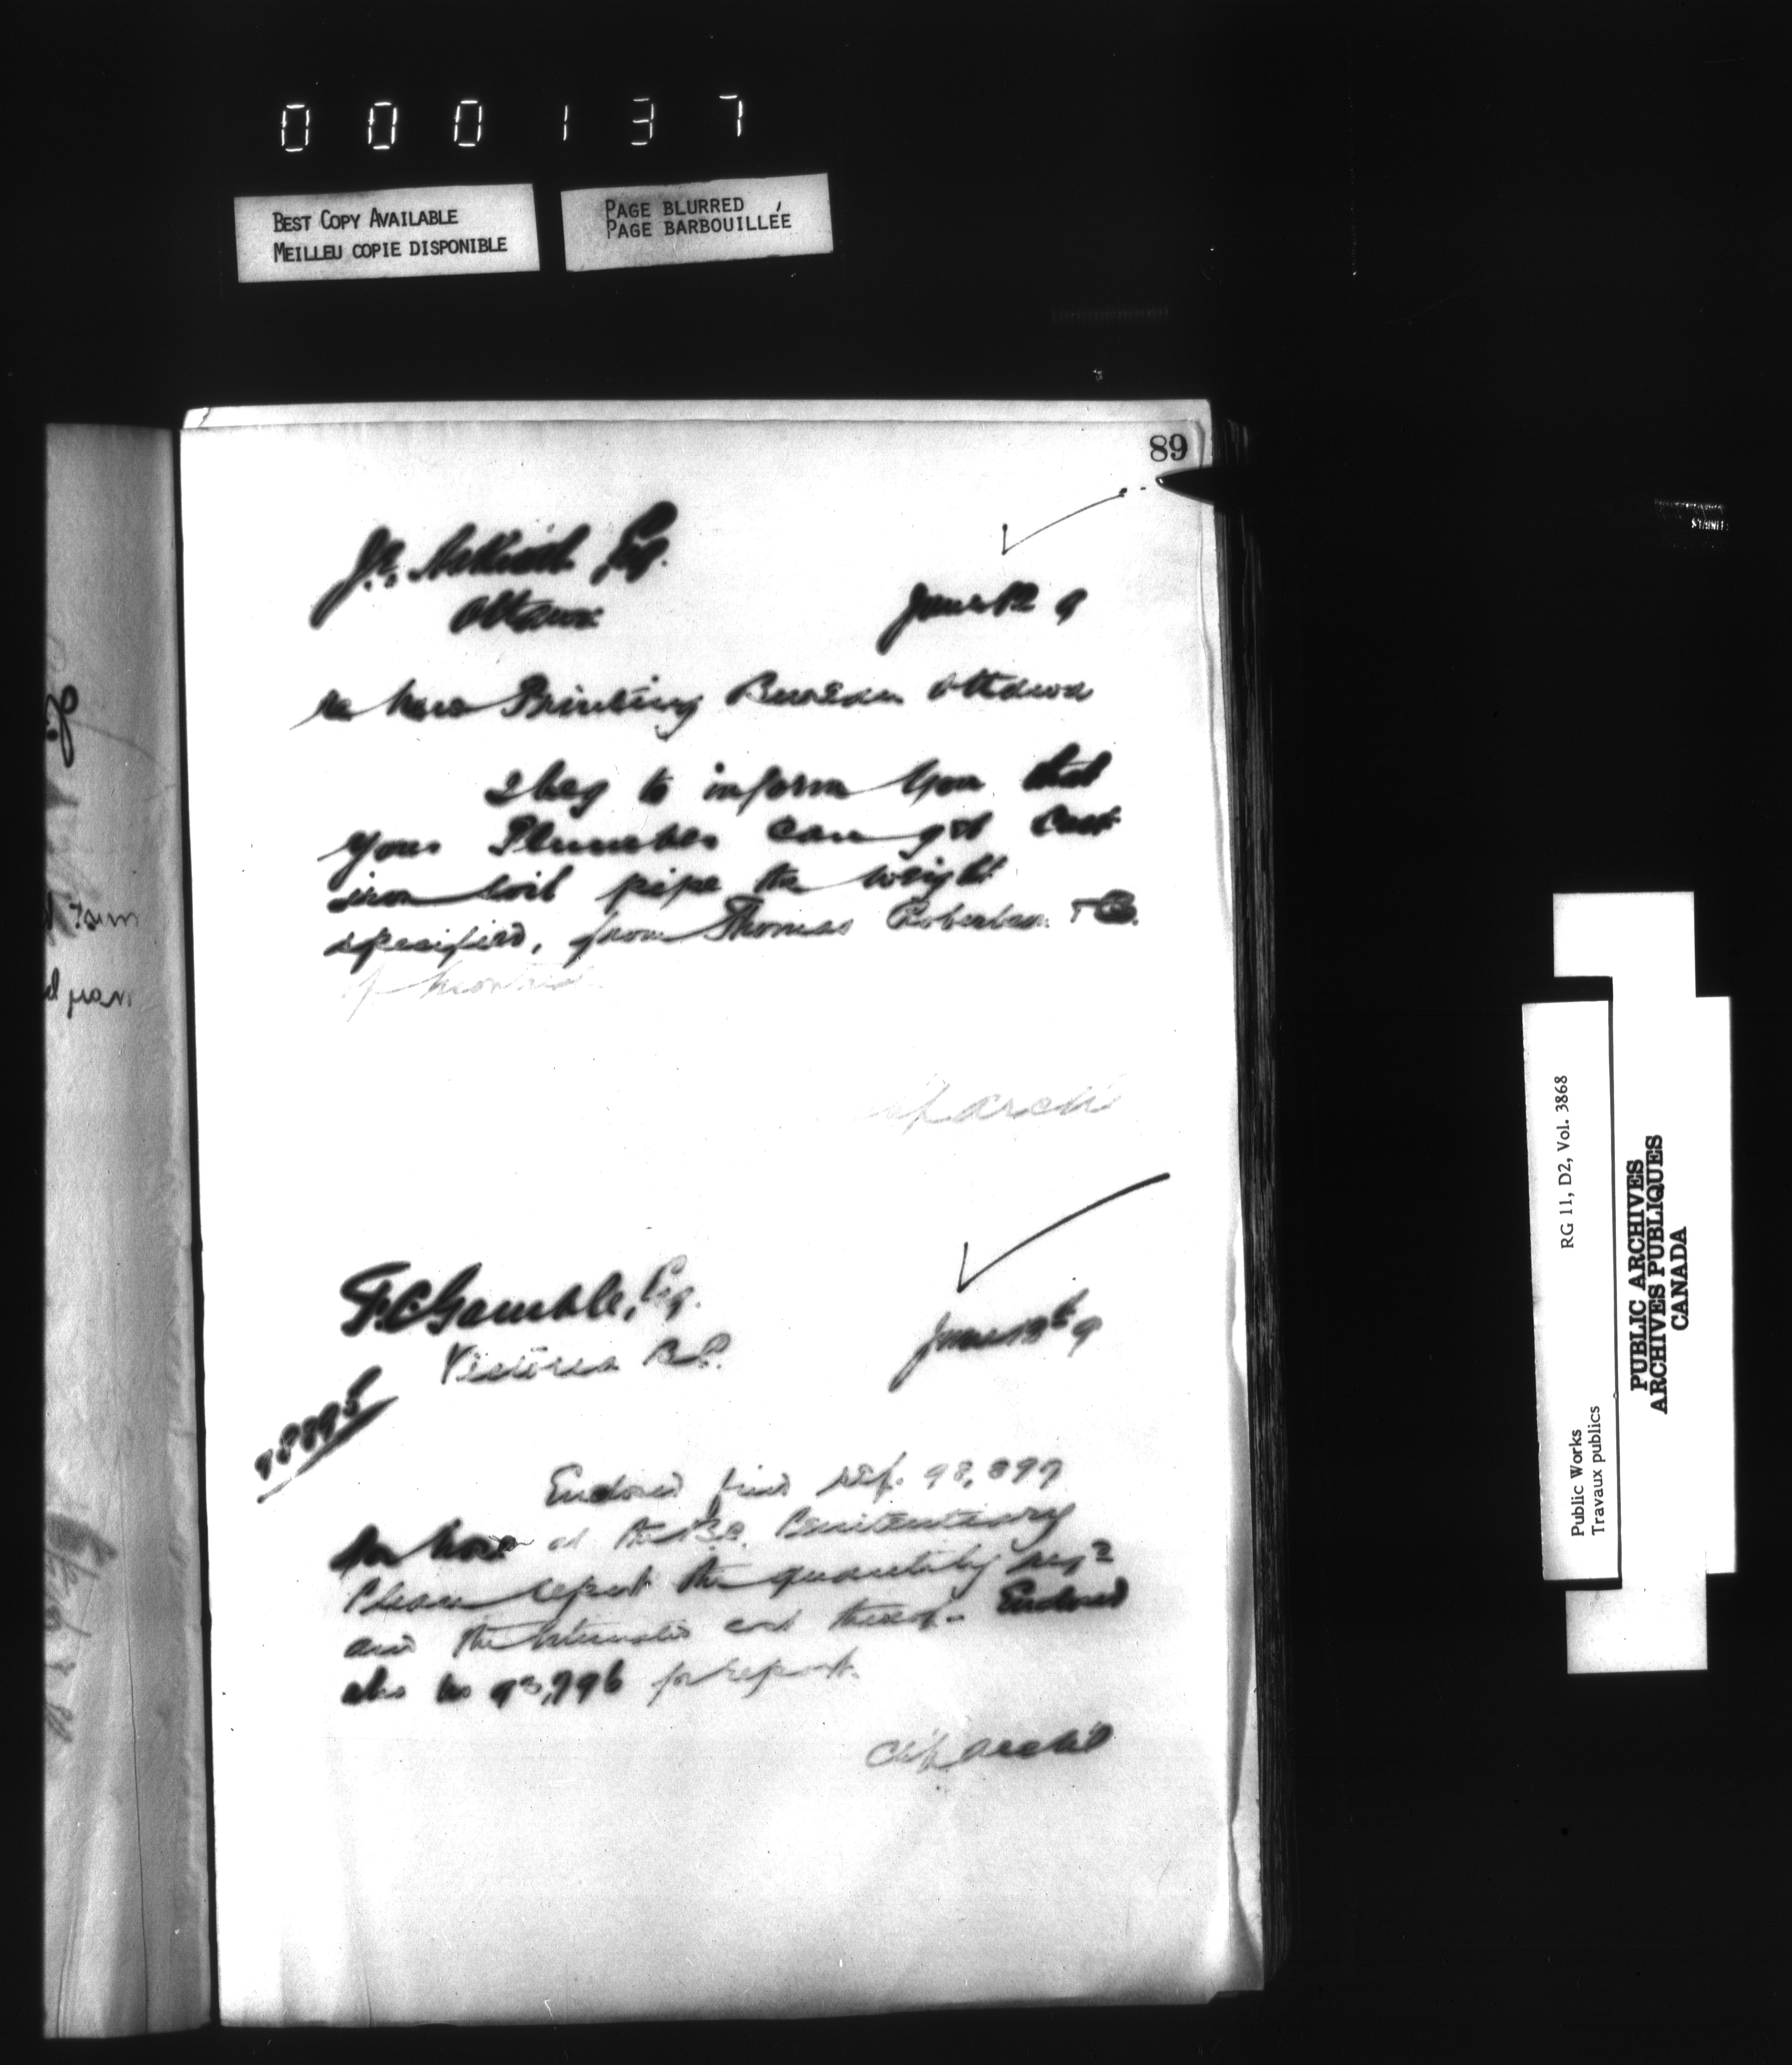 000137
BEST COPY AVAILABLE
MEILLEU COPIE DISPONIBLE
PAGE BLURRED
PAGE BARBOUILLÉE
89
Esq.
Ottawa
June 12 9
re New Printing Bureau Ottawa
I beg to inform you that
your Plumber can get cast
iron soil pipe the weight
specified, from Thomas Robertson & Co.
of Montreal
Chf Archt
F.C. Gamble, Esq.
Victoria B.C.
June 13th 9
98895
Enclosed find Ref. 98,897
for hose at the B.C. Penitentiary
Please report the quantity reqd
and the estimated cost thereof. Enclosed
also is 98,896 for report.
Chf Archt
RG 11, D2, Vol. 3868
Public Works
Travaux publics
PUBLIC ARCHIVES
ARCHIVES PUBLIQUES
CANADA